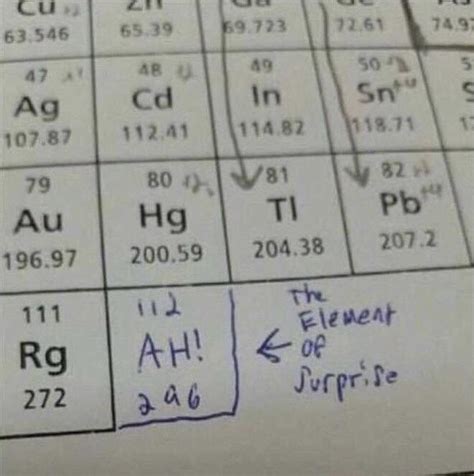 Cu Zn Ga Ge As
63.546 65.39 69.723 72.61 74.92
47 48 49 50
Ag Cd In Sn +4
107.87 112.41 114.82 118.71
79 80 81 82
Au Hg Tl Pb +4
196.97 200.59 204.38 207.2
111 112
Rg AH!
272 296
The
Element
← of
Surprise